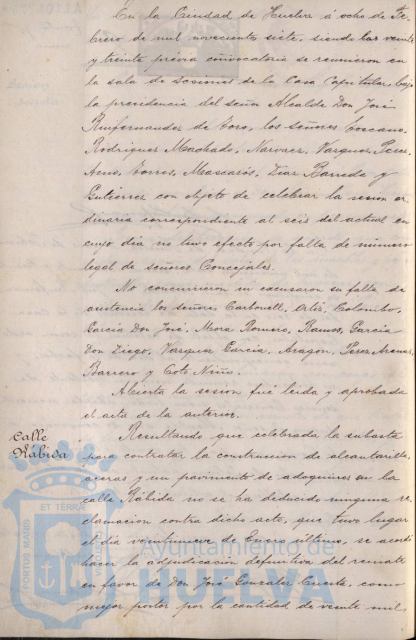 En la Ciudad de Huelva á ocho de Fe
brero de mil novecientos siete, siendo las veinte
y treinta previa convocatoria se reunieron en
la sala de sesiones de la Casa Capitular, bajo
la presidencia del señor Alcalde Don José
Ruifernandez de Toro, los señores Toscano,
Rodriguez Machado, Narvaez, Vazquez Perez,
Torres, Mascarós, Diaz Barreda y
Gutierrez con objeto de celebrar la sesion or
dinaria correspondiente al seis del actual en
cuyo dia no tuvo efecto por falta de número
legal de señores Concejales.
No concurrieron ni excusaron su falta de
asistencia los señores Carbonell, Ortiz, Colombo,
Garcia Don José, Mora Romero, Ramos, Garcia
Don Diego, Vazquez Garcia, Aragon, Perez
Barrero y Coto Niño.
Abierta la sesion fué leida y aprobada
el acta de la anterior.
Calle
Rábida
Resultando que celebrada la subasta
para contratar la construccion de alcantarilla,
aceras y un pavimento de adoquines en la
calle Rábida no se ha deducido ninguna re
clamacion contra dicho acto, que tuvo lugar
el dia veintinueve de Enero último, se acordó
hacer la adjudicacion definitiva del remate
en favor de Don José Gonzalez Cuesta, como
mejor postor por la cantidad de veinte mil
PORTUS MARIS ET TERRÆ
Ayuntamiento de
HUELVA